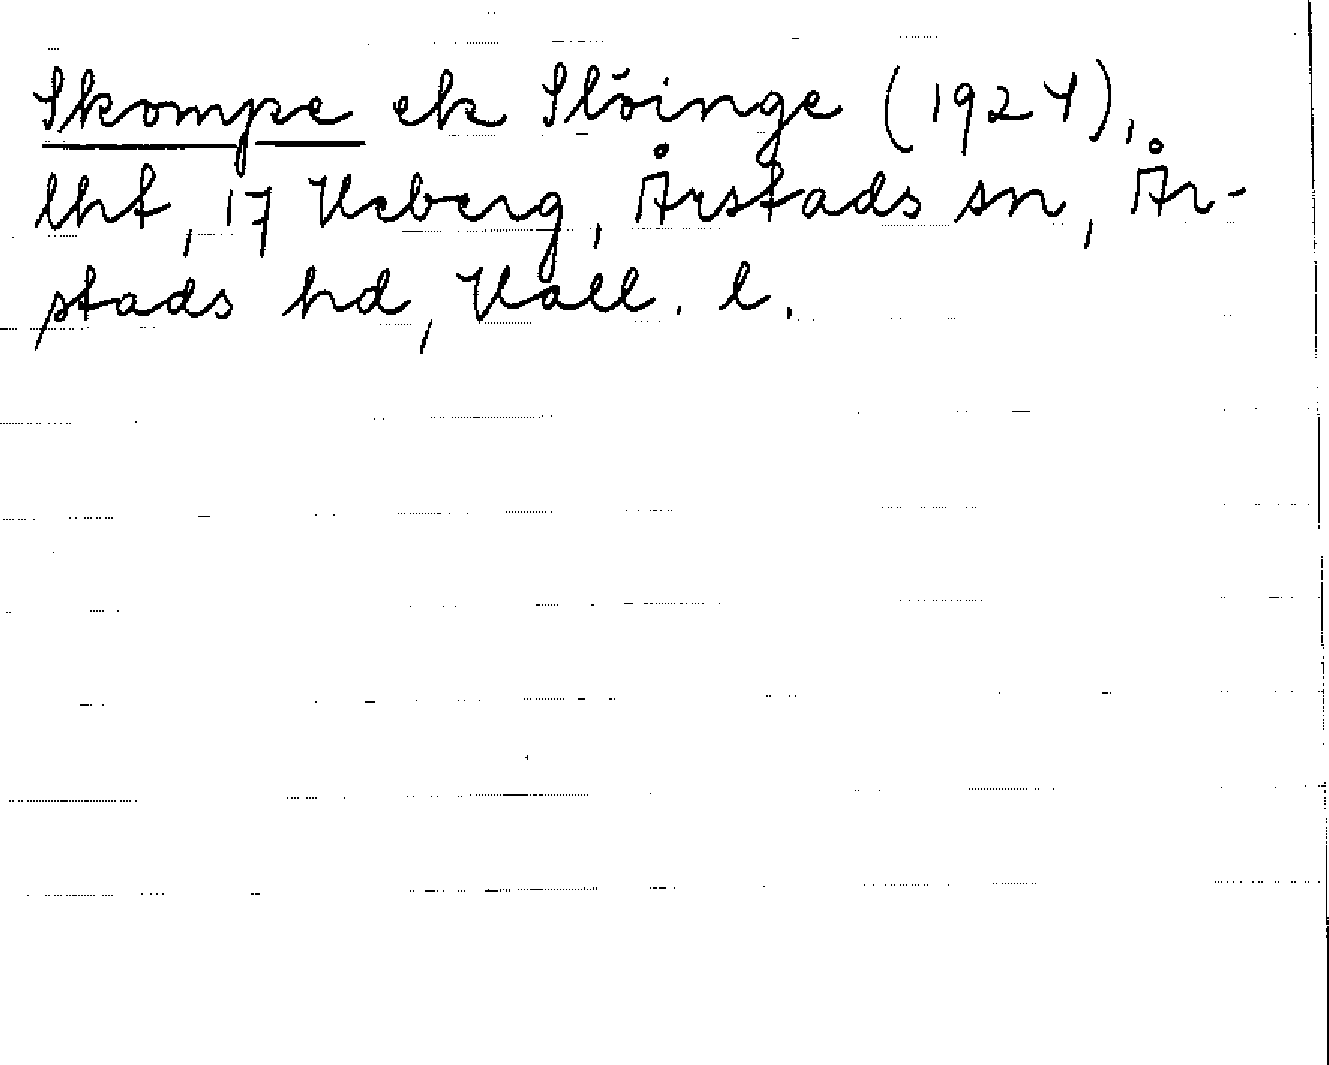 Skompe ek Slöinge (1924),
lht, 17 Heberg, Årstads sn, År-
stads hd, Hall. l.